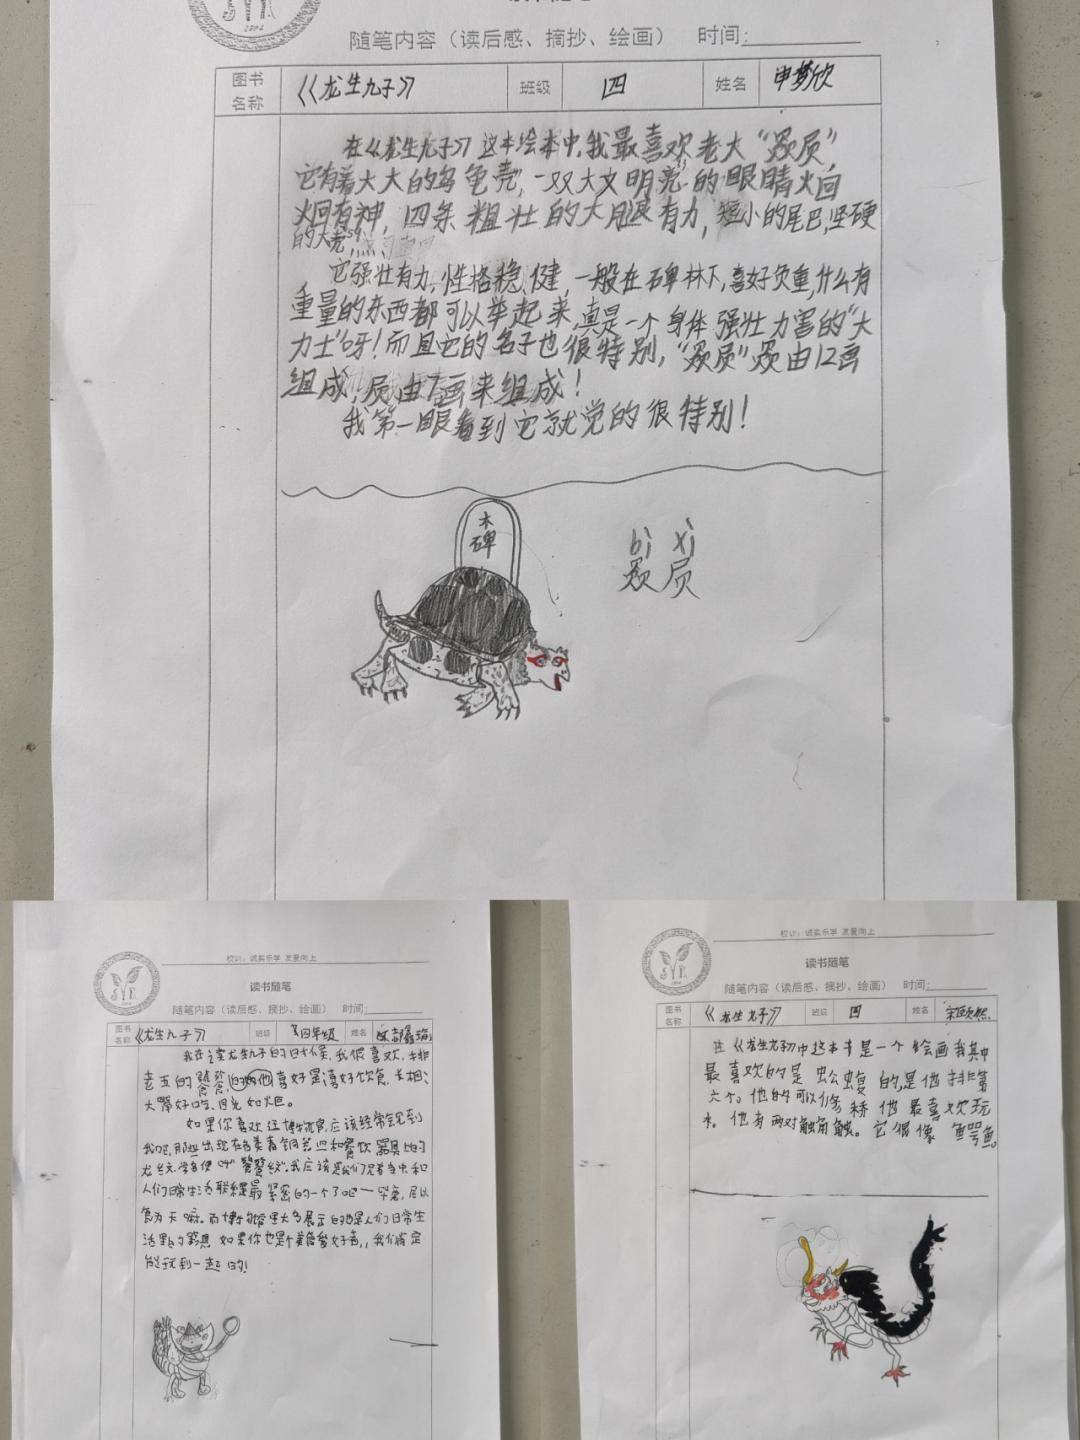 随笔内容（读后感、摘抄、绘画） 时间:
图书名称 《龙生九子》 班级 四 姓名 申梦欣
在《龙生九子》这本绘本中,我最喜欢老大“赑屃”,
它有着大大的乌龟壳,一双大又明亮的眼睛火回
火回有神,四条粗壮的大腿很有力,短小的尾巴,坚硬
的大壳,
它强壮有力,性格稳健,一般在碑林下,喜好负重,什么有
重量的东西都可以举起来,真是一个身体强壮力害的“大
力士”呀!而且它的名子也很特别,“赑屃”赑由12画
组成,屃由7画来组成!
我第一眼看到它就觉的很特别!
木
碑
bì xì
赑屃
校训：诚实乐学 友爱向上
读书随笔
随笔内容（读后感、摘抄、绘画） 时间:
图书名称 《龙生九子》 班级 四年级 姓名
我在读龙生九子的时候,我很喜欢排
老五的饕餮,他喜好是喜好饮食,
大嘴好吃,目光如炬。
如果你喜欢逛博物馆,应该经常会见到
我吧,那些出现在各类青铜器皿和餐饮器具上的
龙纹,学名便叫“饕餮纹”。我应该是我们兄弟当中和
人们日常生活联系最紧密的一个了吧——毕竟,民以
食为天嘛。而博物馆里大多展示的都是人们日常生
活里的器具 如果你也是个美食爱好者,我们肯定
能玩到一起的!
校训：诚实乐学 友爱向上
读书随笔
随笔内容（读后感、摘抄、绘画） 时间:
图书名称 《龙生九子》 班级 四 姓名
在《龙生九子》中这本书是一个绘画我其中
最喜欢的是蚣蝮的,是他排第
六个。他的可以修桥他最喜欢玩
水。他有两对触角触。它很像鱼鳄鱼。